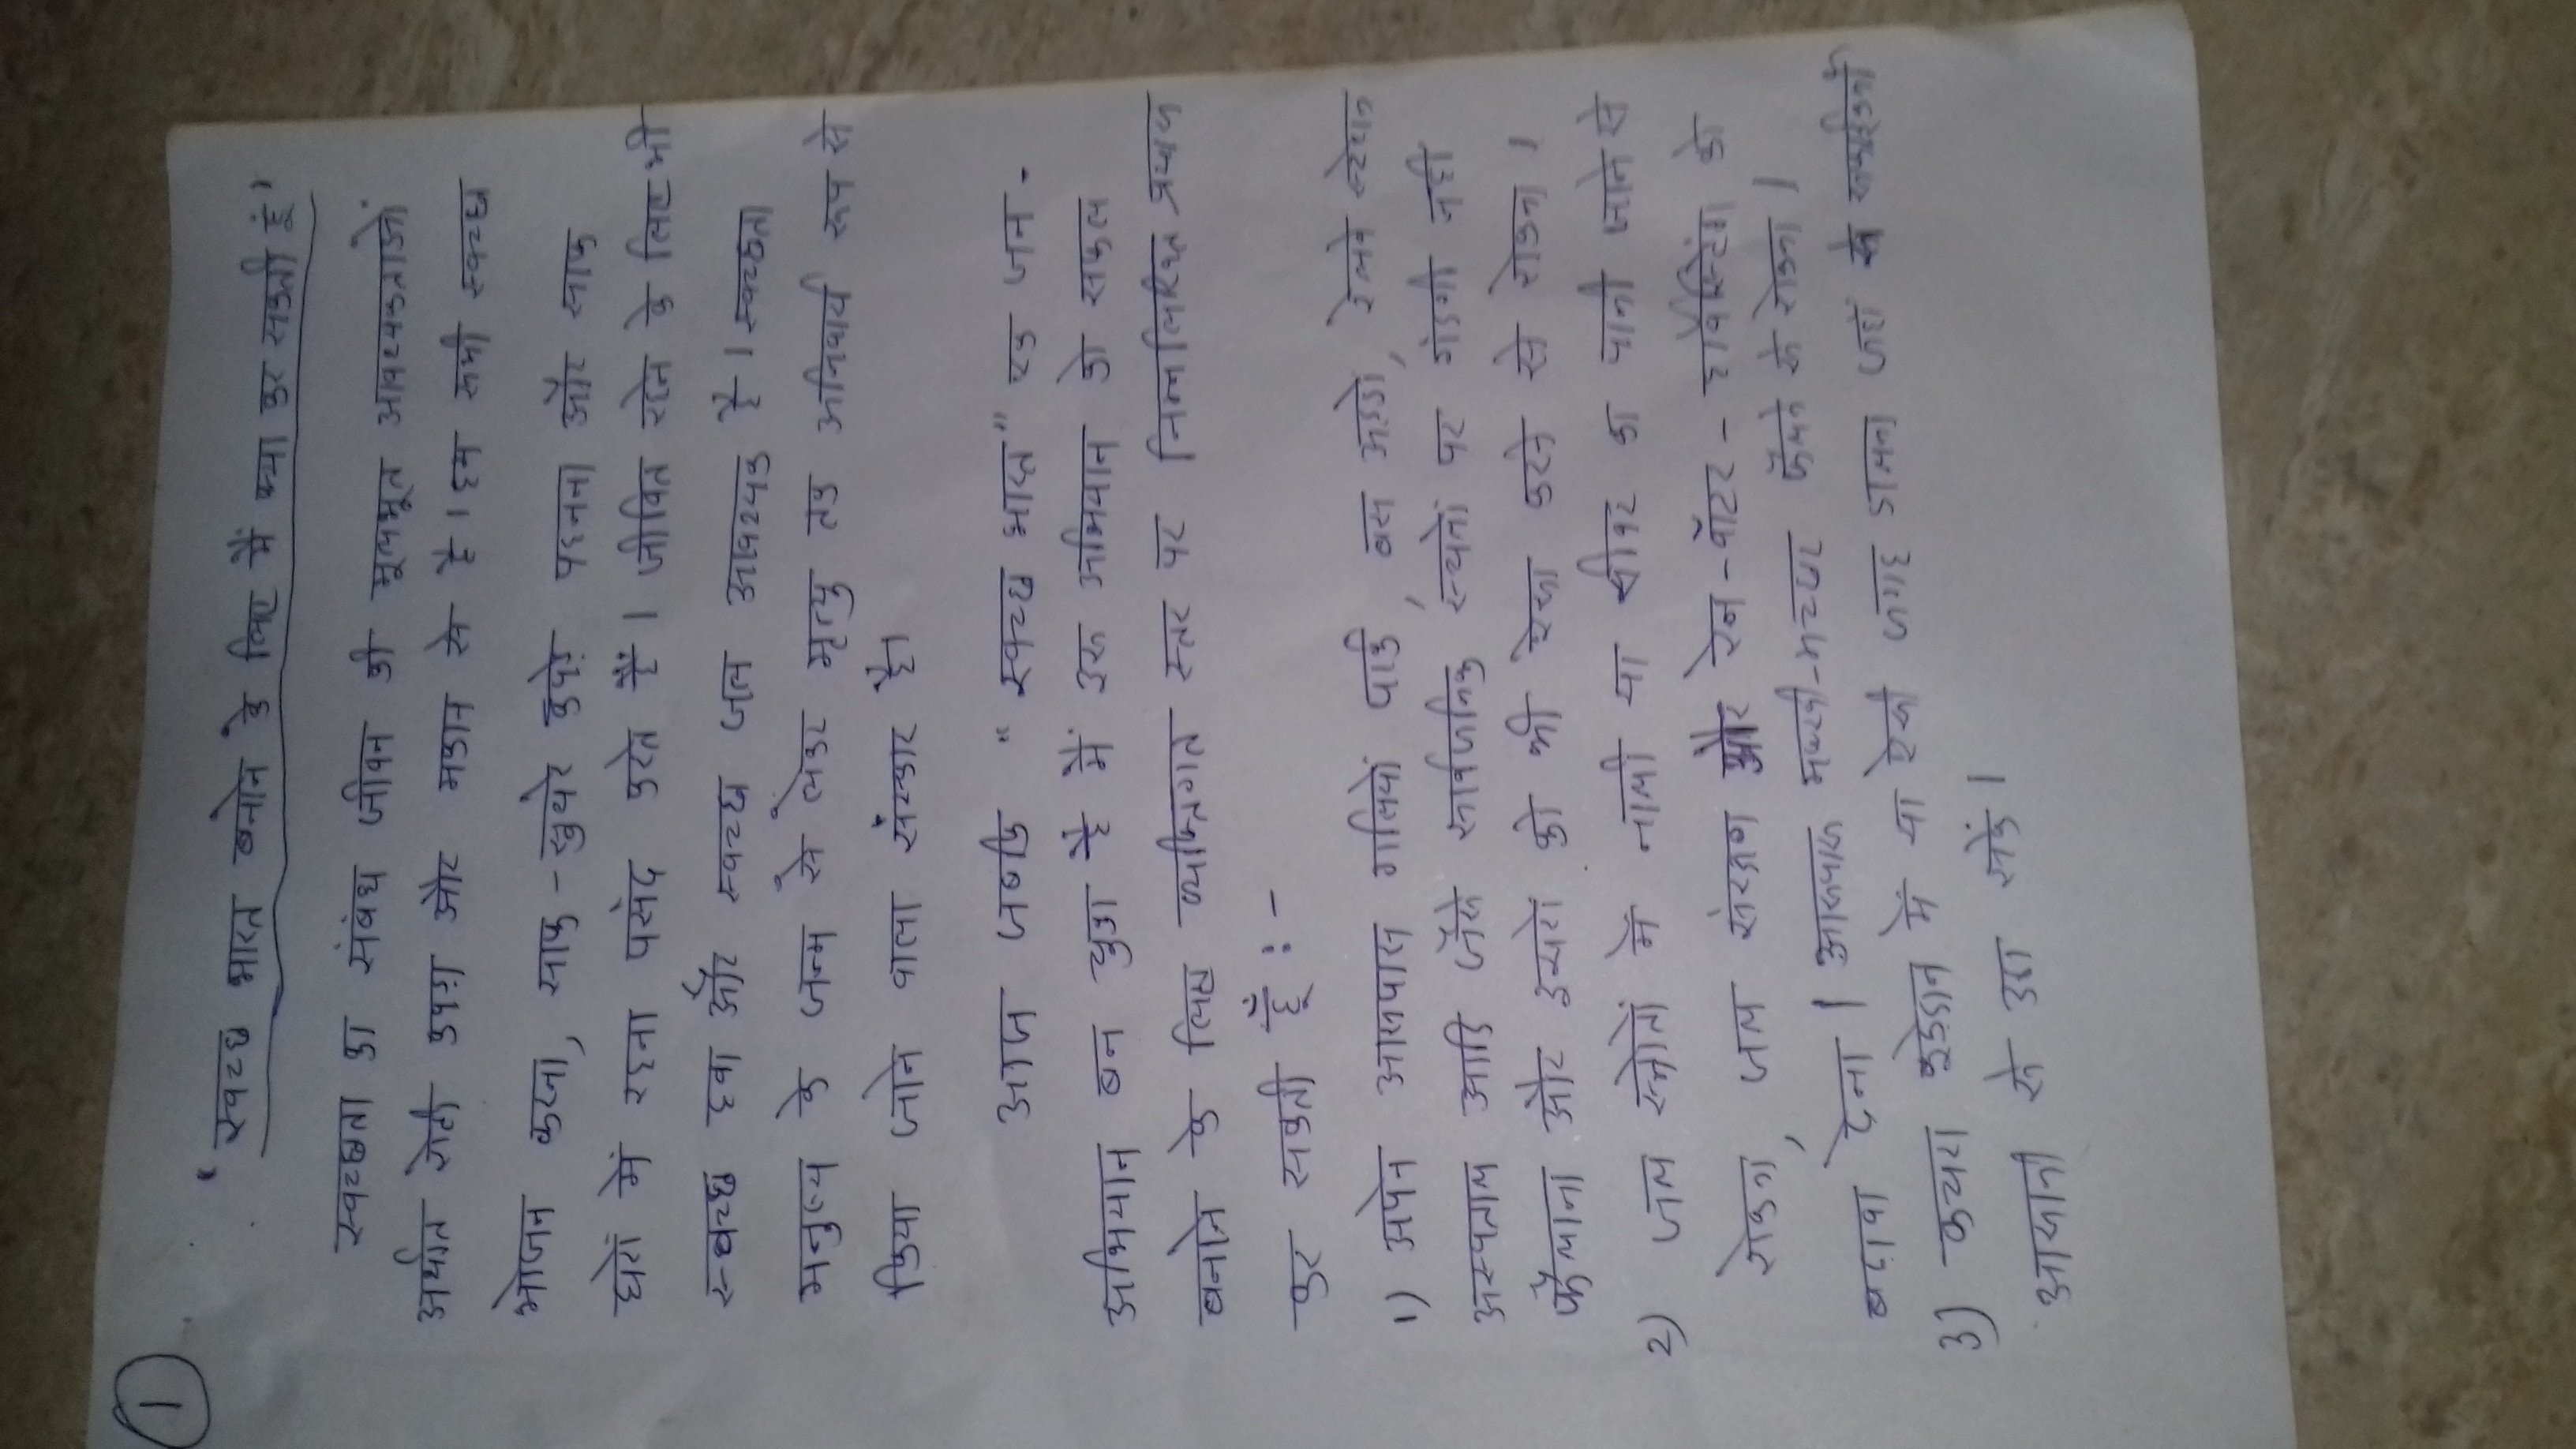 1
"स्वच्छ भारत बनाने के लिए मैं क्या कर सकती हूं"
स्वच्छता का संबंध जीवन की मूलभूत आवश्यकताओं
अर्थात रोटी कपड़ा और मकान से है। हम सभी स्वच्छ
भोजन करना, साफ - सुथरे कपड़े पहनना और साफ
घरों में रहना पसंद करते हैं। जीवित रहने के लिए भी
स्वच्छ हवा और स्वच्छ जल आवश्यक है। स्वच्छता
मनुष्य के जन्म से लेकर मृत्यु तक अनिवार्य रूप से
किया जाने वाला संस्कार है।
आज जबकि "स्वच्छ भारत" एक जन -
अभियान बन चुका है मैं उस अभियान को सफल
बनाने के लिए व्यक्तिगत स्तर पर निम्नलिखित उपाय
कर सकती हूँ :-
1) अपने आसपास गलियों पार्क, बस अड्डों, रेलवे स्टेशन
अस्पताल आदि जैसे सार्वजनिक स्थानों पर गंदगी नहीं
फैलाना और दूसरों को भी ऐसा करने से रोकना।
2) जल स्त्रोतों में नाली या सीवर का पानी जाने से
रोकना, जल संरक्षण और रेन - वॉटर - हार्वेस्टिंग को
बढ़ावा देना। आसपास मक्खी-मच्छर फैलने से रोकना।
3) कचरा कूड़ेदान में या ऐसी जगह डालना जहां से सफाईकर्मी
आसानी से उठा सकें।